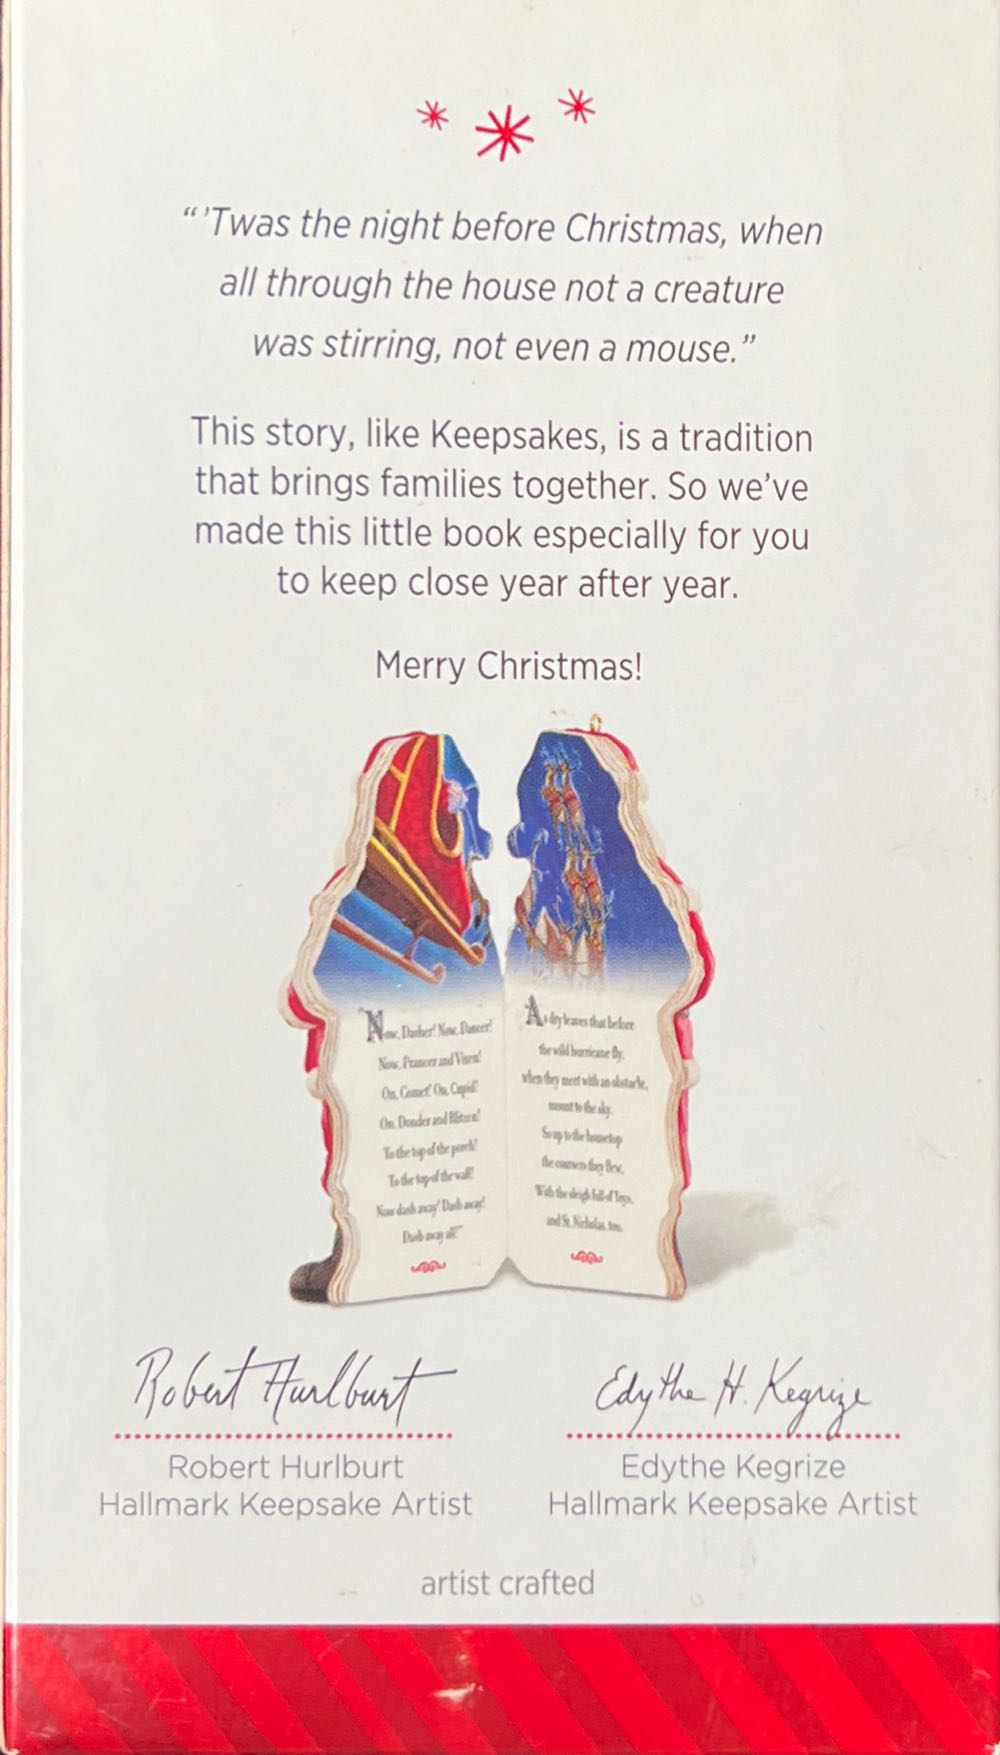 “ ’Twas the night before Christmas, when
all through the house not a creature
was stirring, not even a mouse.”
This story, like Keepsakes, is a tradition
that brings families together. So we’ve
made this little book especially for you
to keep close year after year.
Merry Christmas!
"Now, Dasher! Now, Dancer!
Now, Prancer and Vixen!
On, Comet! On, Cupid!
On, Donder and Blitzen!
To the top of the porch!
To the top of the wall!
Now dash away! Dash away!
Dash away all!"
As dry leaves that before
the wild hurricane fly,
when they meet with an obstacle,
mount to the sky.
So up to the housetop
the coursers they flew,
With the sleigh full of Toys,
and St. Nicholas, too.
Robert Hurlburt
Robert Hurlburt
Hallmark Keepsake Artist
Edythe H. Kegrize
Edythe Kegrize
Hallmark Keepsake Artist
artist crafted